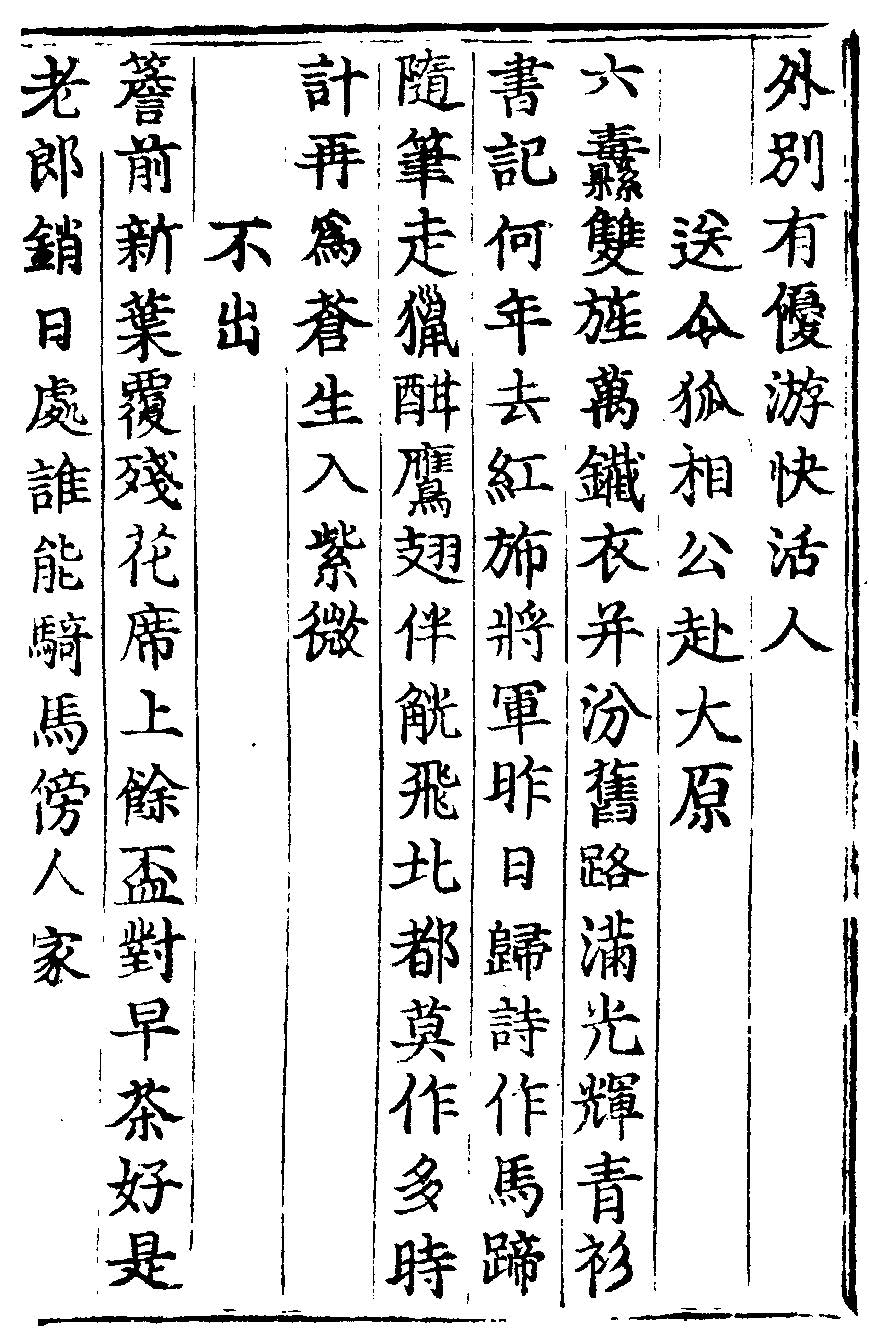 外別有優游快活人
送令狐相公赴大原
六纛雙旌萬鐵衣并汾舊路滿光輝青衫
書記何年去紅斾將軍昨日歸詩作馬蹄
隨筆走獵酣鷹翅伴觥飛北都莫作多時
計再爲蒼生入紫微
不出
簷前新葉覆殘花席上餘盃對早茶好是
老郎銷日處誰能騎馬傍人家